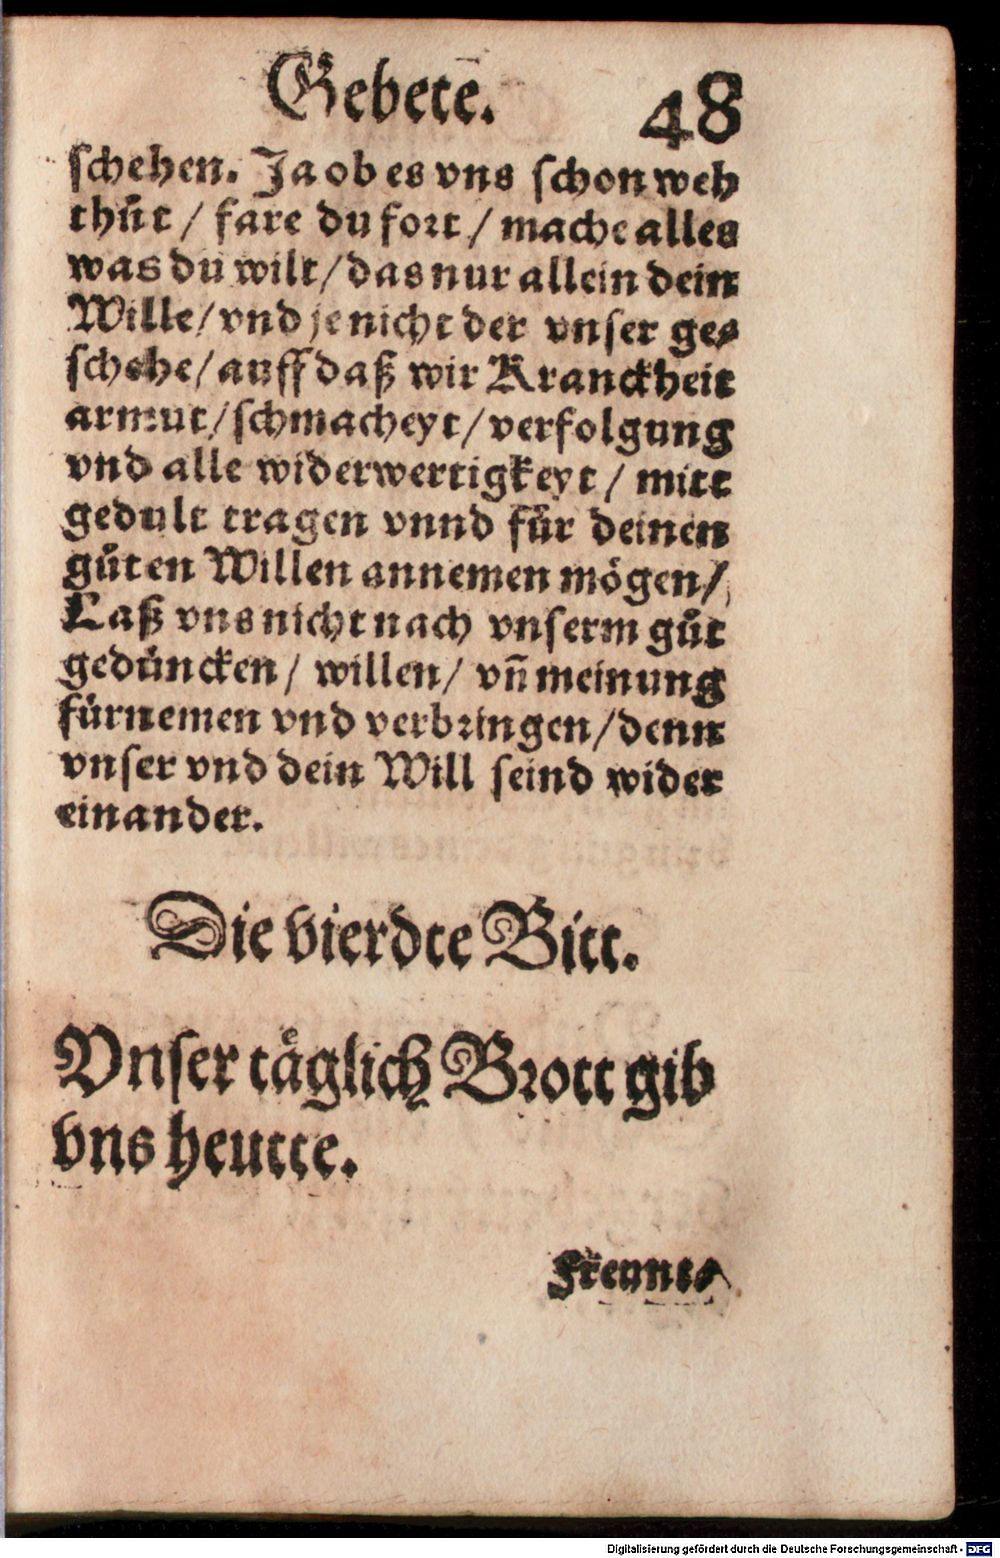 Gebete. 48
schehen. Ja ob es vns schon weh
thůt / fare du fort / mache alles
was du wilt / das nur allein dein
Wille / vnd je nicht der vnser ge-
schehe / auff daß wir Kranckheit
armut / schmacheyt / verfolgung
vnd alle widerwertigkeyt / mitt
gedult tragen vnnd für deinen
gůten Willen annemen mögen /
Laß vns nicht nach vnserm gůt
gedüncken / willen / vn̄ meinung
fürnemen vnd verbringen / denn
vnser vnd dein Will seind wider
einander.
Die vierdte Bitt.
Vnser täglich Brott gib
vns heutte.
Digitalisierung gefördert durch die Deutsche Forschungsgemeinschaft - DFG